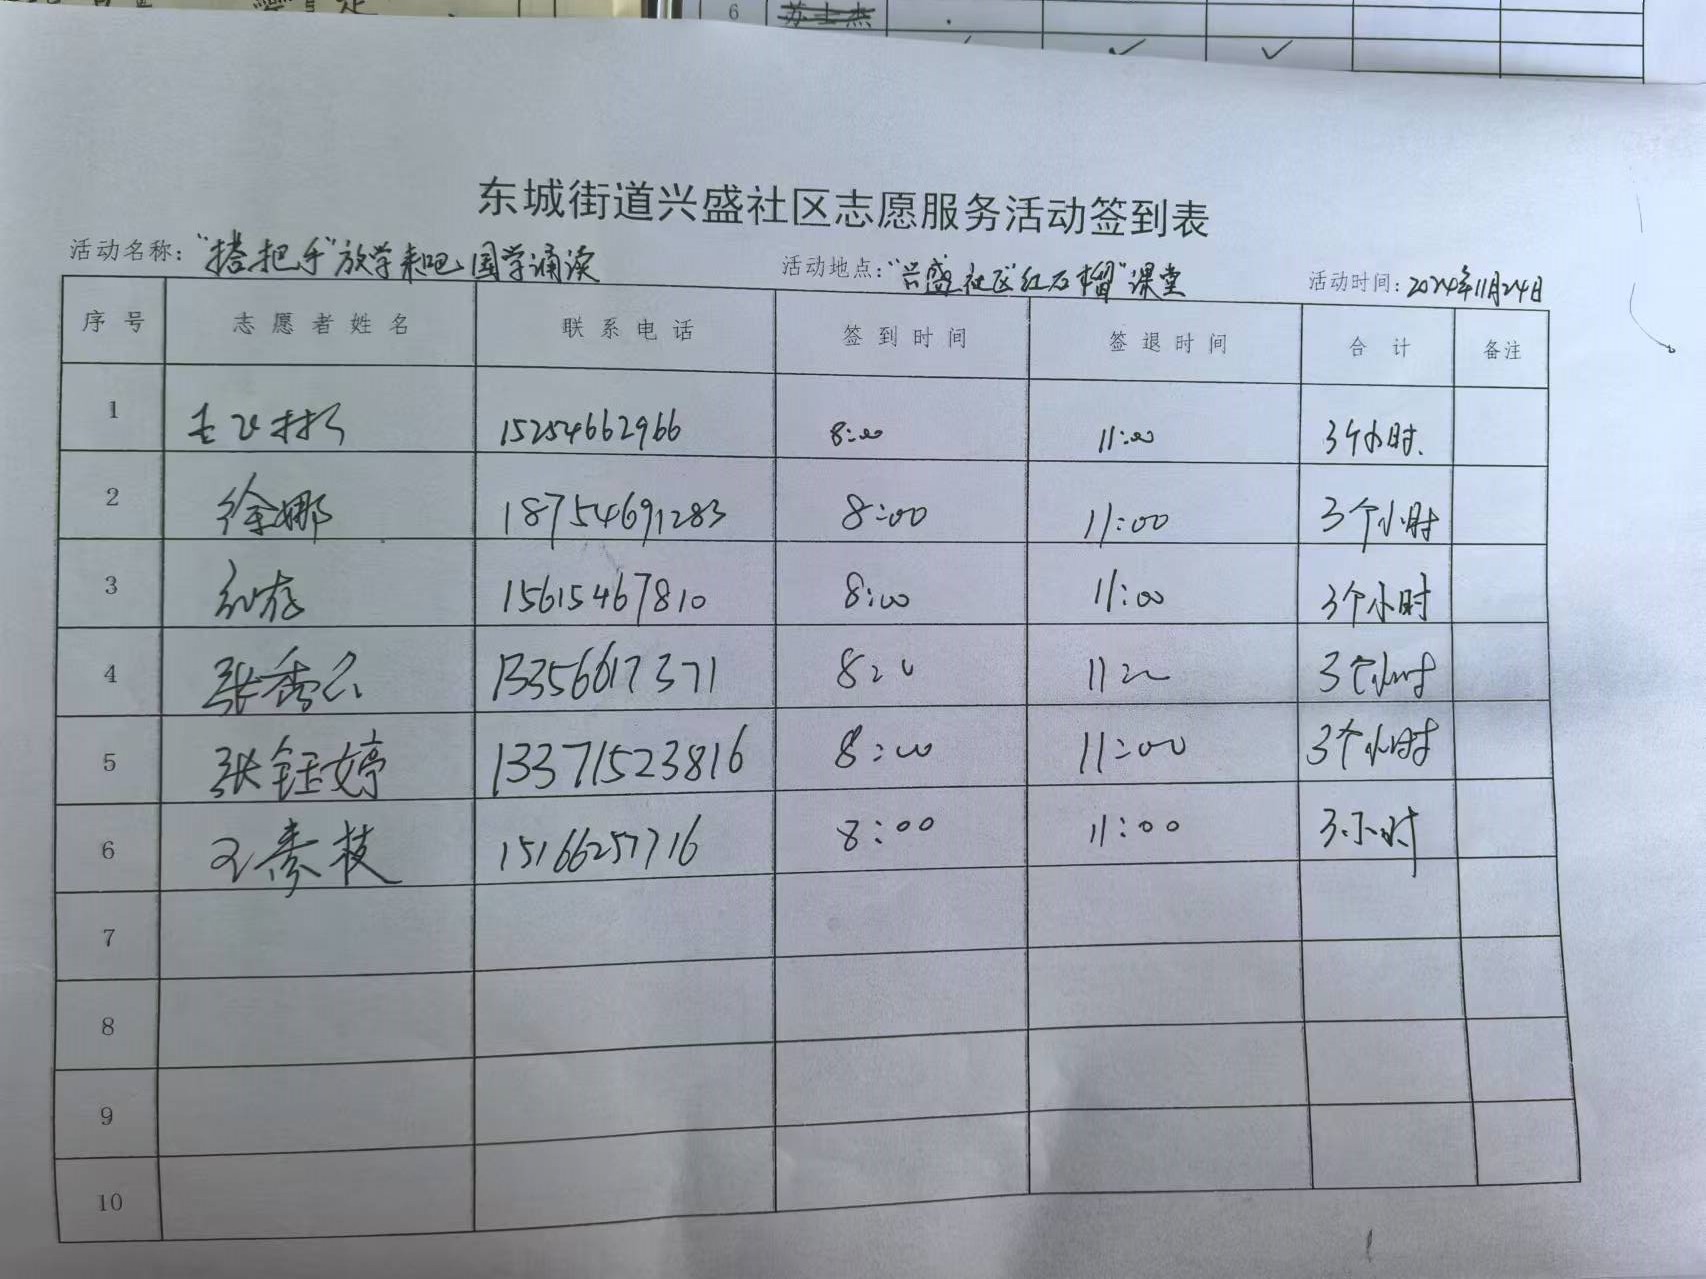 6 苏士杰
东城街道兴盛社区志愿服务活动签到表
活动名称："搭把手"放学来吧 国学诵读 活动地点："兴盛社区"红石榴"课堂 活动时间：2024年11月24日
序号 志愿者姓名 联系电话 签到时间 签退时间 合计 备注
1 15254662966 8:00 11:00 3个小时.
2 徐娜 18754691283 8:00 11:00 3个小时
3 15615467810 8:00 11:00 3个小时
4 张秀 13356617371 8:00 11:00 3个小时
5 张钰婷 13371523816 8:00 11:00 3个小时
6 王秀枝 15166257716 8:00 11:00 3小时
7
8
9
10